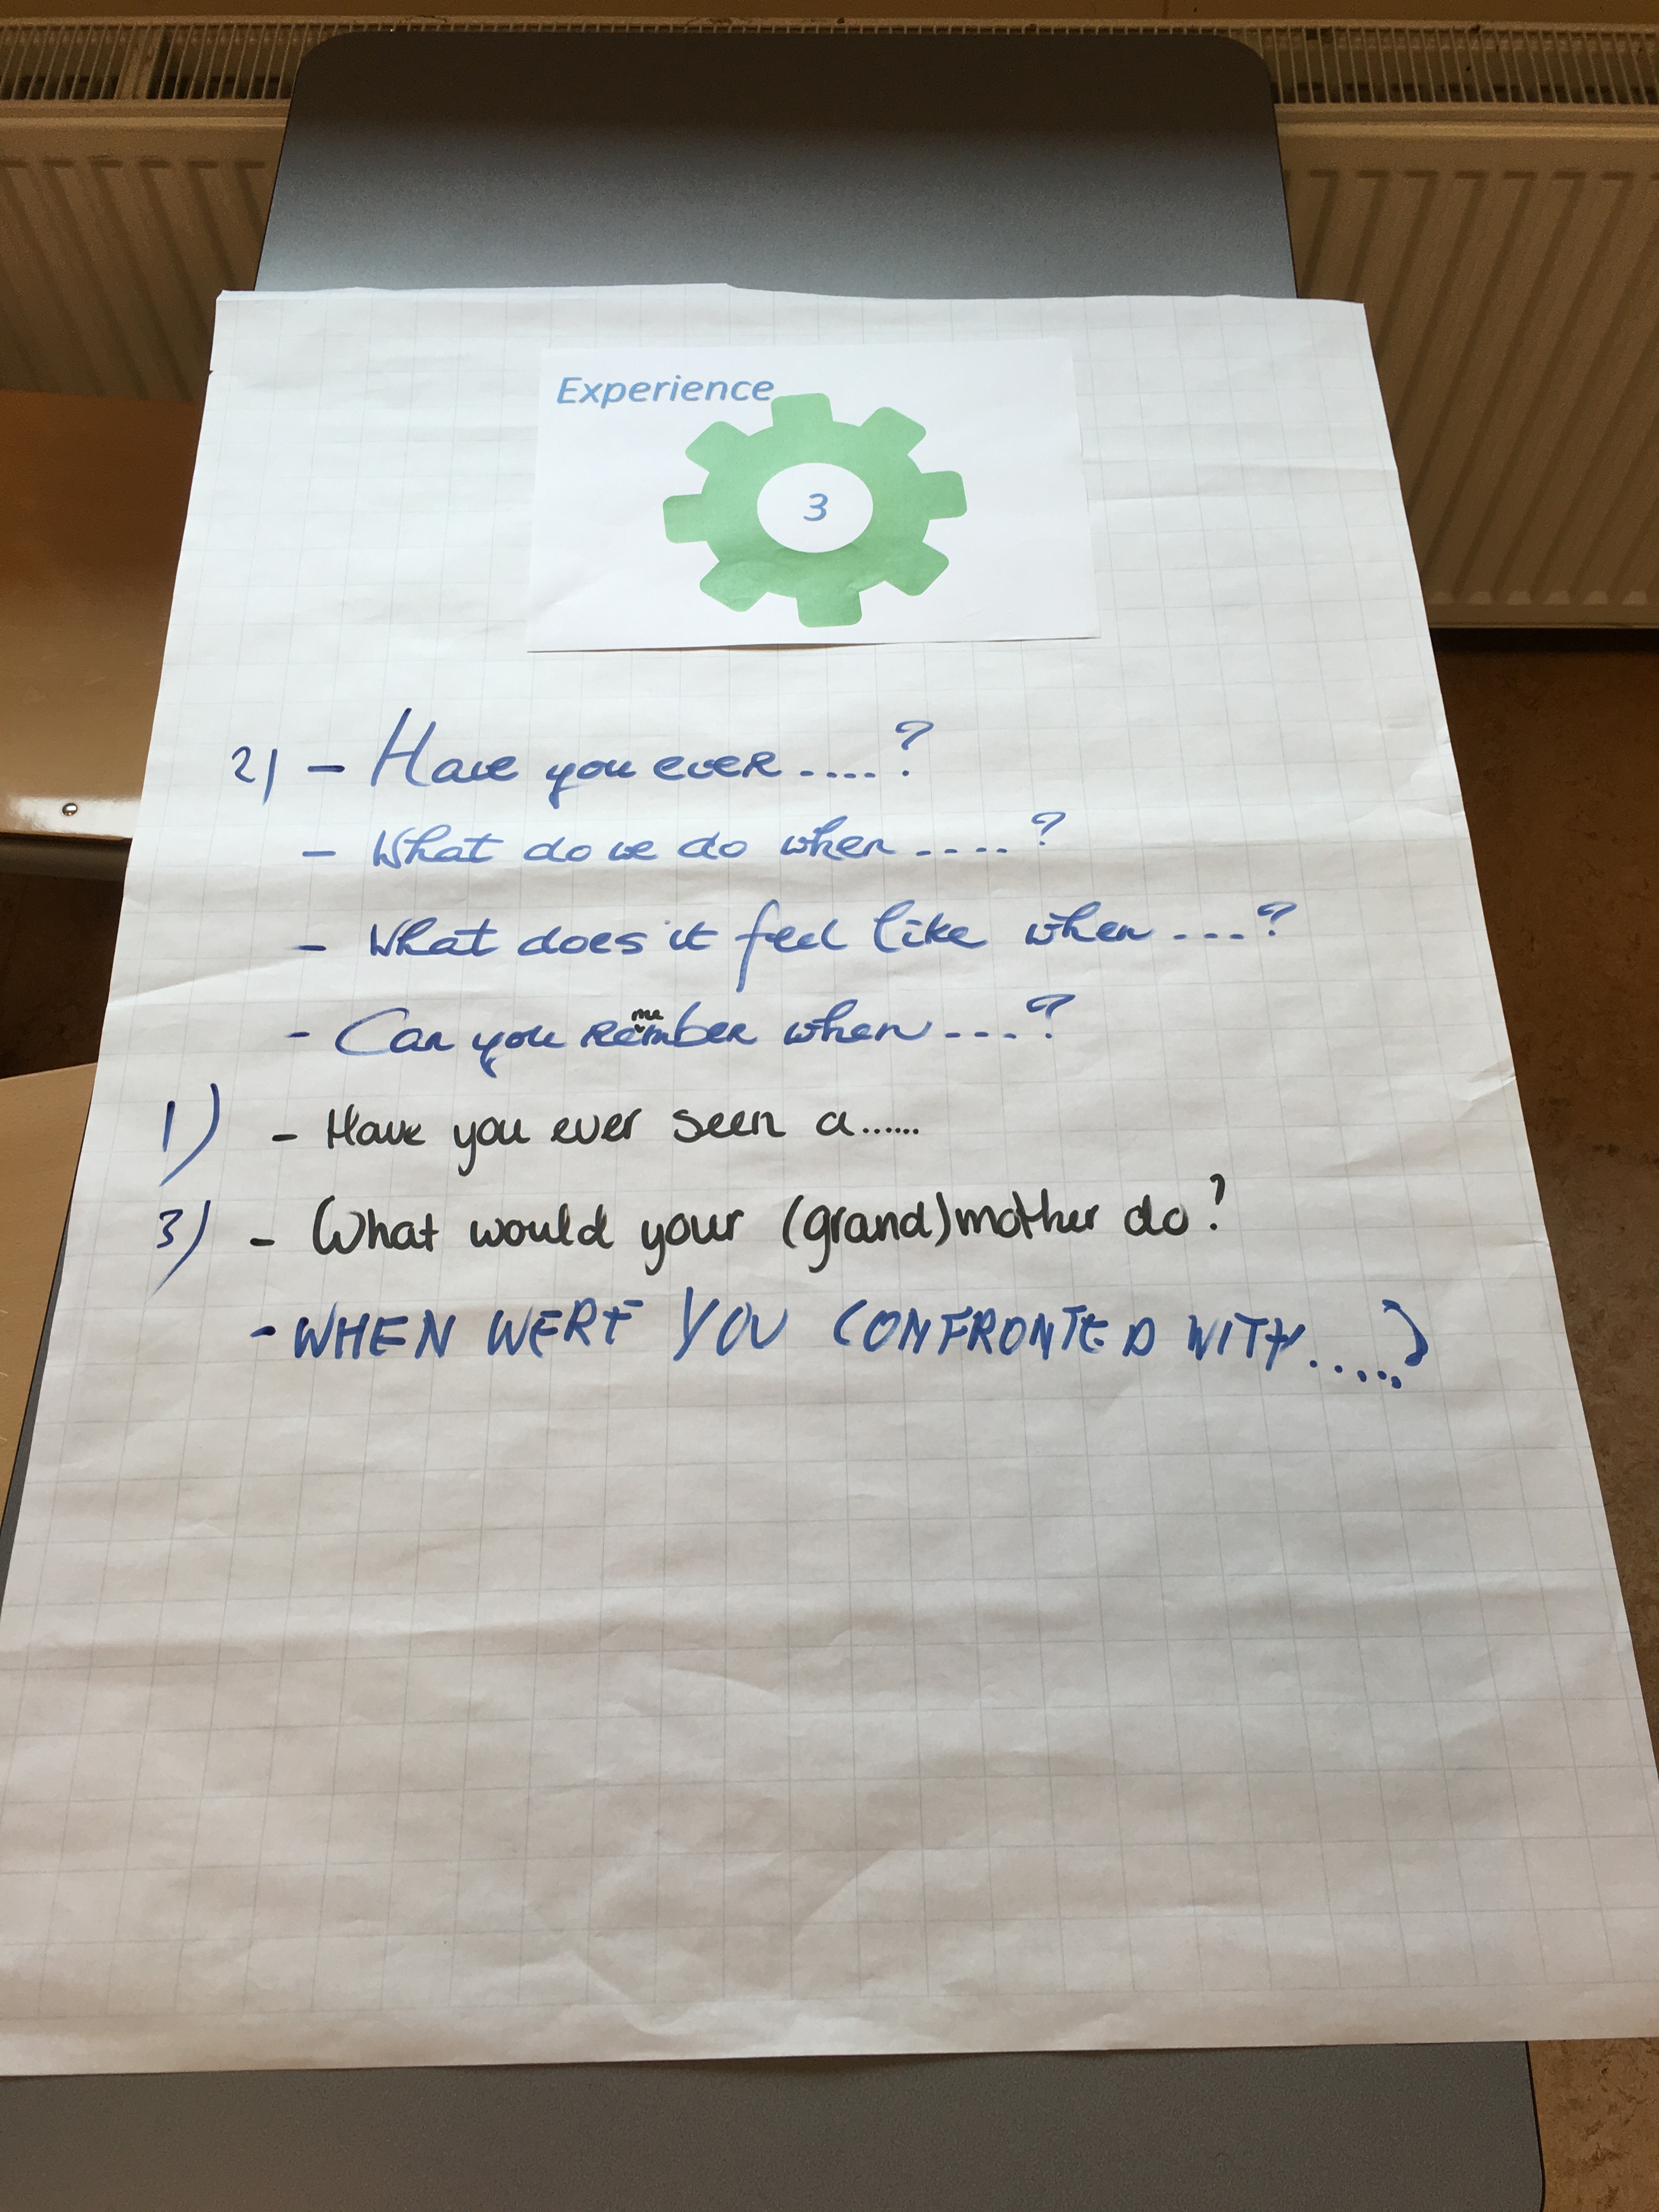 Experience
3
2) - Have you ever ....?
- What do we do when ....?
- What does it feel like when ....?
- Can you remember when ....?
1) - Have you ever seen a......
3) - What would your (grand)mother do?
- WHEN WERE YOU CONFRONTED WITH.....?